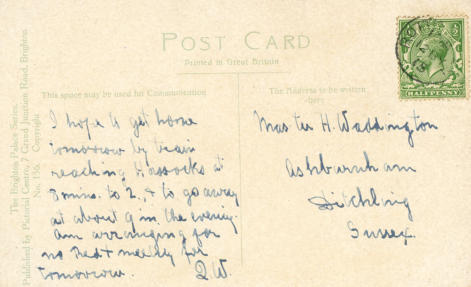 POST CARD
Printed in Great Britain
This space may be used for Communication
The Address to be written here
The Brighton Palace Series.
Published by Pictorial Centre, 7 Grand Junction Road, Brighton
No. 156. Copyright
I hope to get home
tomorrow by train
reaching Hassocks at
8 mins. to 2, & to go away
at about 9 in the evening.
Am arranging for
no Red + meeky for
tomorrow. Q.W.
Master H. Waddington
Ashburnham
Ditchling
Sussex
HALFPENNY